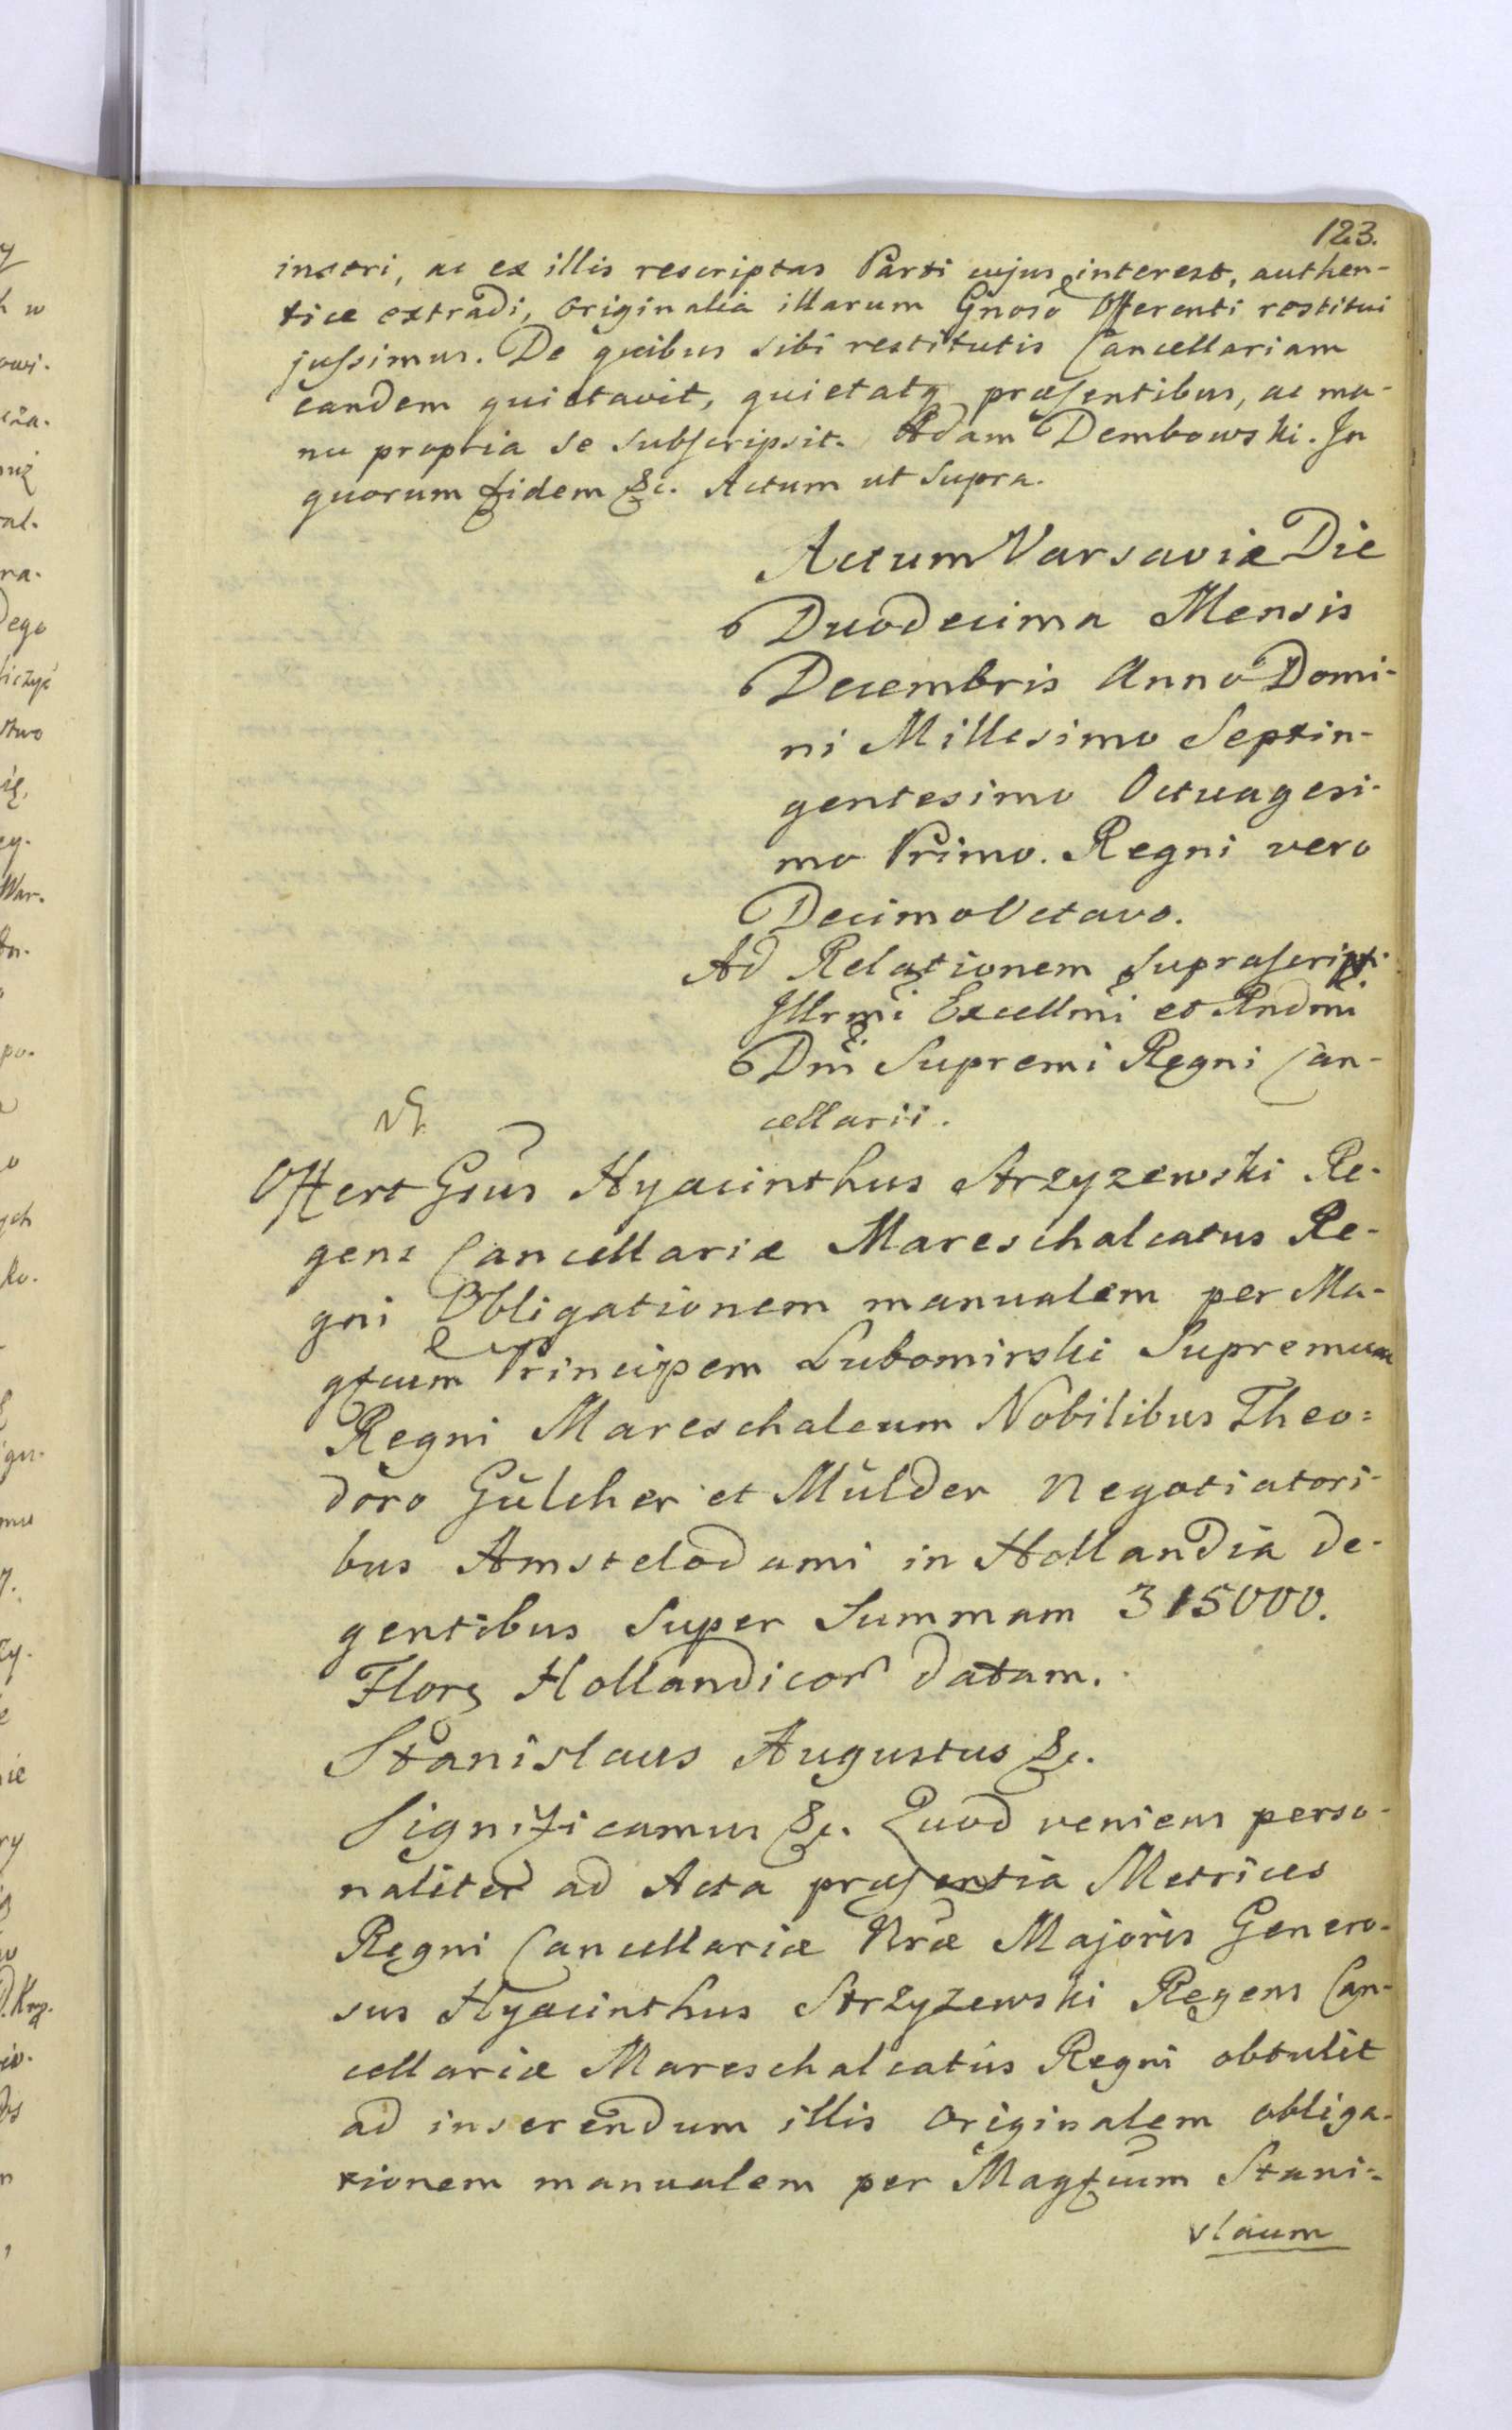 123.
inseri, ac ex illis rescriptas Parti cujus interest, authen-
tice extradi, Originalia illarum Gnoso Offerenti restitui
jussimus. De quibus sibi restitutis Cancellariam
eandem quietavit, quietatq præsentibus, ac ma-
nu propria se subscripsit. Adam Dembowski. In
quorum fidem &c. Actum ut supra.
Actum Varsaviæ Die
Duodecima Mensis
Decembris Anno Domi-
ni Millesimo Septin-
gentesimo Octuagesi-
mo Primo. Regni vero
Decimo Octavo.
Ad Relationem suprascripti
Illrmi Excellmi et Rndmi
Dni Supremi Regni Can-
cellarii.
Offert Gsus Hyacinthus Strzyzewski Re-
gens Cancellariæ Mareschalcatus Re-
gni Obligationem manualem per Ma-
gfcum Principem Lubomirski Supremum
Regni Mareschalcum Nobilibus Theo=
doro Gülcher et Mülder Negotiatori-
bus Amstelodami in Hollandia de-
gentibus super Summam 315000.
Flor Hollandicor datam.
Stanislaus Augustus &c.
Significamus &c. Quod veniens perso-
naliter ad Acta præsentia Metrices
Regni Cancellariæ Nræ Majoris Genero-
sus Hyacinthus Strzyzewski Regens Can-
cellariæ Mareschalcatus Regni obtulit
ad inserendum illis originalem obliga-
tionem manualem per Magfcum Stani=
slaum